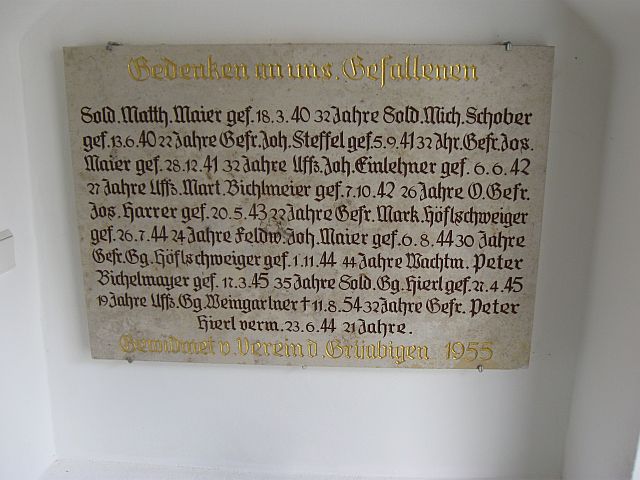 Gedenken an uns. Gefallenen
Sold. Matth. Maier gef. 18.3.40 32 Jahre Sold. Mich. Schober
gef. 13.6.40 22 Jahre Gefr. Joh. Steffel gef. 5.9.41 32 Jhr. Gefr. Jos.
Maier gef. 28.12.41 32 Jahre Uffz. Joh. Einlehner gef. 6.6.42
27 Jahre Uffz. Mart. Bichlmeier gef. 7.10.42 26 Jahre O. Gefr.
Jos. Harrer gef. 20.5.43 22 Jahre Gefr. Mark. Höflschweiger
gef. 26.7.44 24 Jahre Feldw. Joh. Maier gef. 6.8.44 30 Jahre
Gefr. Gg. Höflschweiger gef. 1.11.44 44 Jahre Wachtm. Peter
Bichelmayer gef. 17.3.45 35 Jahre Sold. Gg. Hierl gef. 27.4.45
19 Jahre Uffz. Gg. Weingartner † 11.8.54 32 Jahre Gefr. Peter
Hierl verm. 23.6.44 21 Jahre.
Gewidmet v. Verein d. 1955